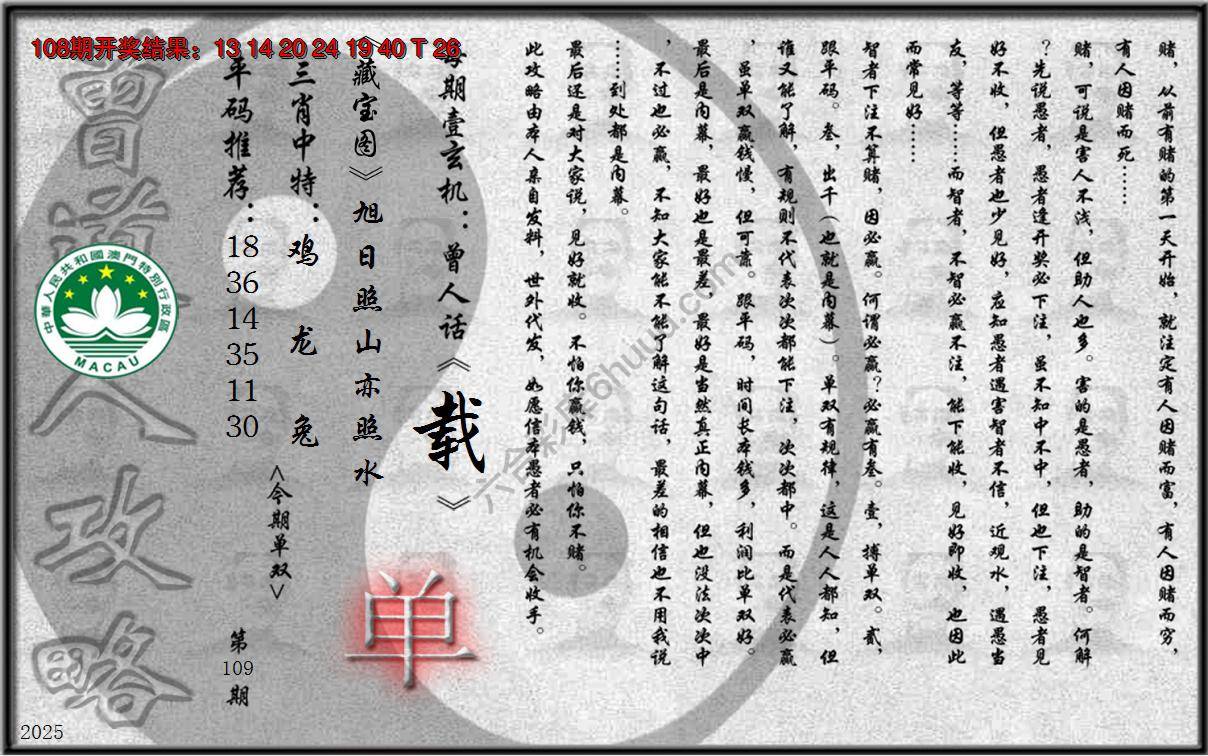 108期开奖结果：13 14 20 24 19 40 T 26
赌，从前有赌的第一天开始，就注定有人因赌而富，有人因赌而穷，
有人因赌而死……
赌，可说是害人不浅，但助人也多。害的是愚者，助的是智者。何解
？先说愚者，愚者逢开奖必下注，虽不知中不中，但也下注，愚者见
好不收，但愚者也少见好，应知愚者遇害智者不信，近观水，遇愚当
友，等等……而智者，不智必赢不注，能下能收，见好即收，也因此
而常见好……
智者下注不算赌，因必赢。何谓必赢？必赢有叁。壹，搏单双。贰，
跟平码。叁，出千（也就是内幕）。单双有规律，这是人人都知，但
谁又能了解，有规则不代表次次都能下注，次次都中。而是代表必赢
，虽单双赢钱慢，但可靠。跟平码，时间长本钱多，利润比单双好。
最后是内幕，最好也是最差，最好是当然真正内幕，但也没法次次中
，不过也必赢，不知大家能不能了解这句话，最差的相信也不用我说
……到处都是内幕。
最后还是对大家说，见好就收。不怕你赢钱，只怕你不赌。
此攻略由本人亲自发料，世外代发，如愿信本愚者必有机会收手。
每期壹玄机：曾人话《载》
《藏宝图》旭日照山亦照水
三肖中特：鸡 龙 兔
<今期单双>
单
平码推荐：
18
36
14
35
11
30
第
109
期
曾道人攻略
中華人民共和國澳門特別行政區
MACAU
六合彩库6huuu.com
2025